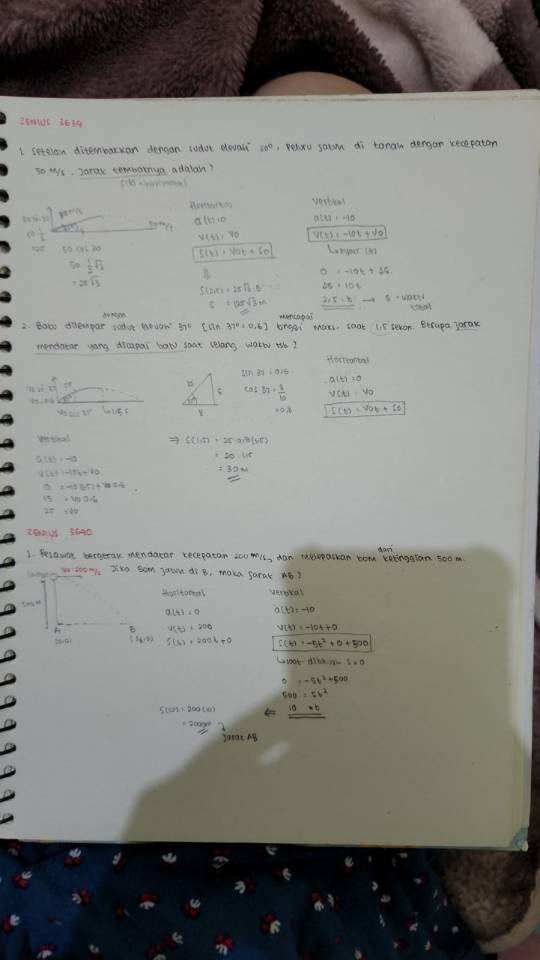 ZENIUS 3639
1. Setelah ditembakkan dengan sudut elevasi 30°, peluru jatuh di tanah dengan kecepatan
50 m/s. Jarak tembaknya adalah?
Horizontal
a(t) = 0
v(t) = v0
s(t) = v0t + s0
Vertikal
a(t) = -10
v(t) = -10t + v0
0 = -10t + 25
25 = 10t
2,5 = t → 5 = waktu
total
50 cos 30
50 . ½√3
= 25√3
s = 125√3 m
dengan
mencapai
2. Batu dilempar sudut elevasi 37° [sin 37° = 0,6] tinggi maks. saat 1,5 sekon. Berapa jarak
mendatar yang dicapai batu saat selang waktu tsb?
sin 37 = 0.6
cos 37 = 8/10
= 0,8
Horizontal
a(t) = 0
v(t) = v0
s(t) = v0t + s0
Vertikal
a(t) = -10
v(t) = -10t + v0
15 = v0 0.6
25 = v0
⇒ s(1,5) = 25 . 0,8 (1,5)
= 20 . 1,5
= 30 m
ZENIUS 3640
dari
1. Pesawat bergerak mendatar kecepatan 200 m/s, dan melepaskan bom ketinggian 500 m.
Jika bom jatuh di B, maka jarak AB?
v0 = 200 m/s
500 m
A
B
(0,0)
Horizontal
a(t) = 0
v(t) = 200
s(t) = 200t + 0
Vertikal
a(t) = -10
v(t) = -10t + 0
s(t) = -5t² + 0 + 500
0 = -5t² + 500
500 = 5t²
10 = t
s(10) = 200 (10)
= 2000 m
Jarak AB